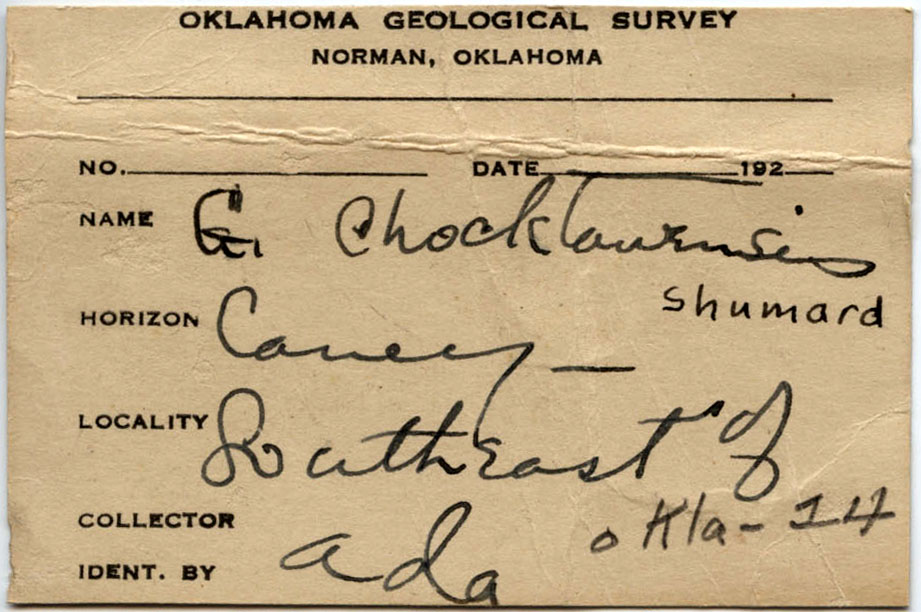 OKLAHOMA GEOLOGICAL SURVEY
NORMAN, OKLAHOMA
NO. DATE 192
NAME G. Chocktawensis
Shumard
HORIZON Caney —
LOCALITY Southeast of
COLLECTOR Okla-14
IDENT. BY Ada